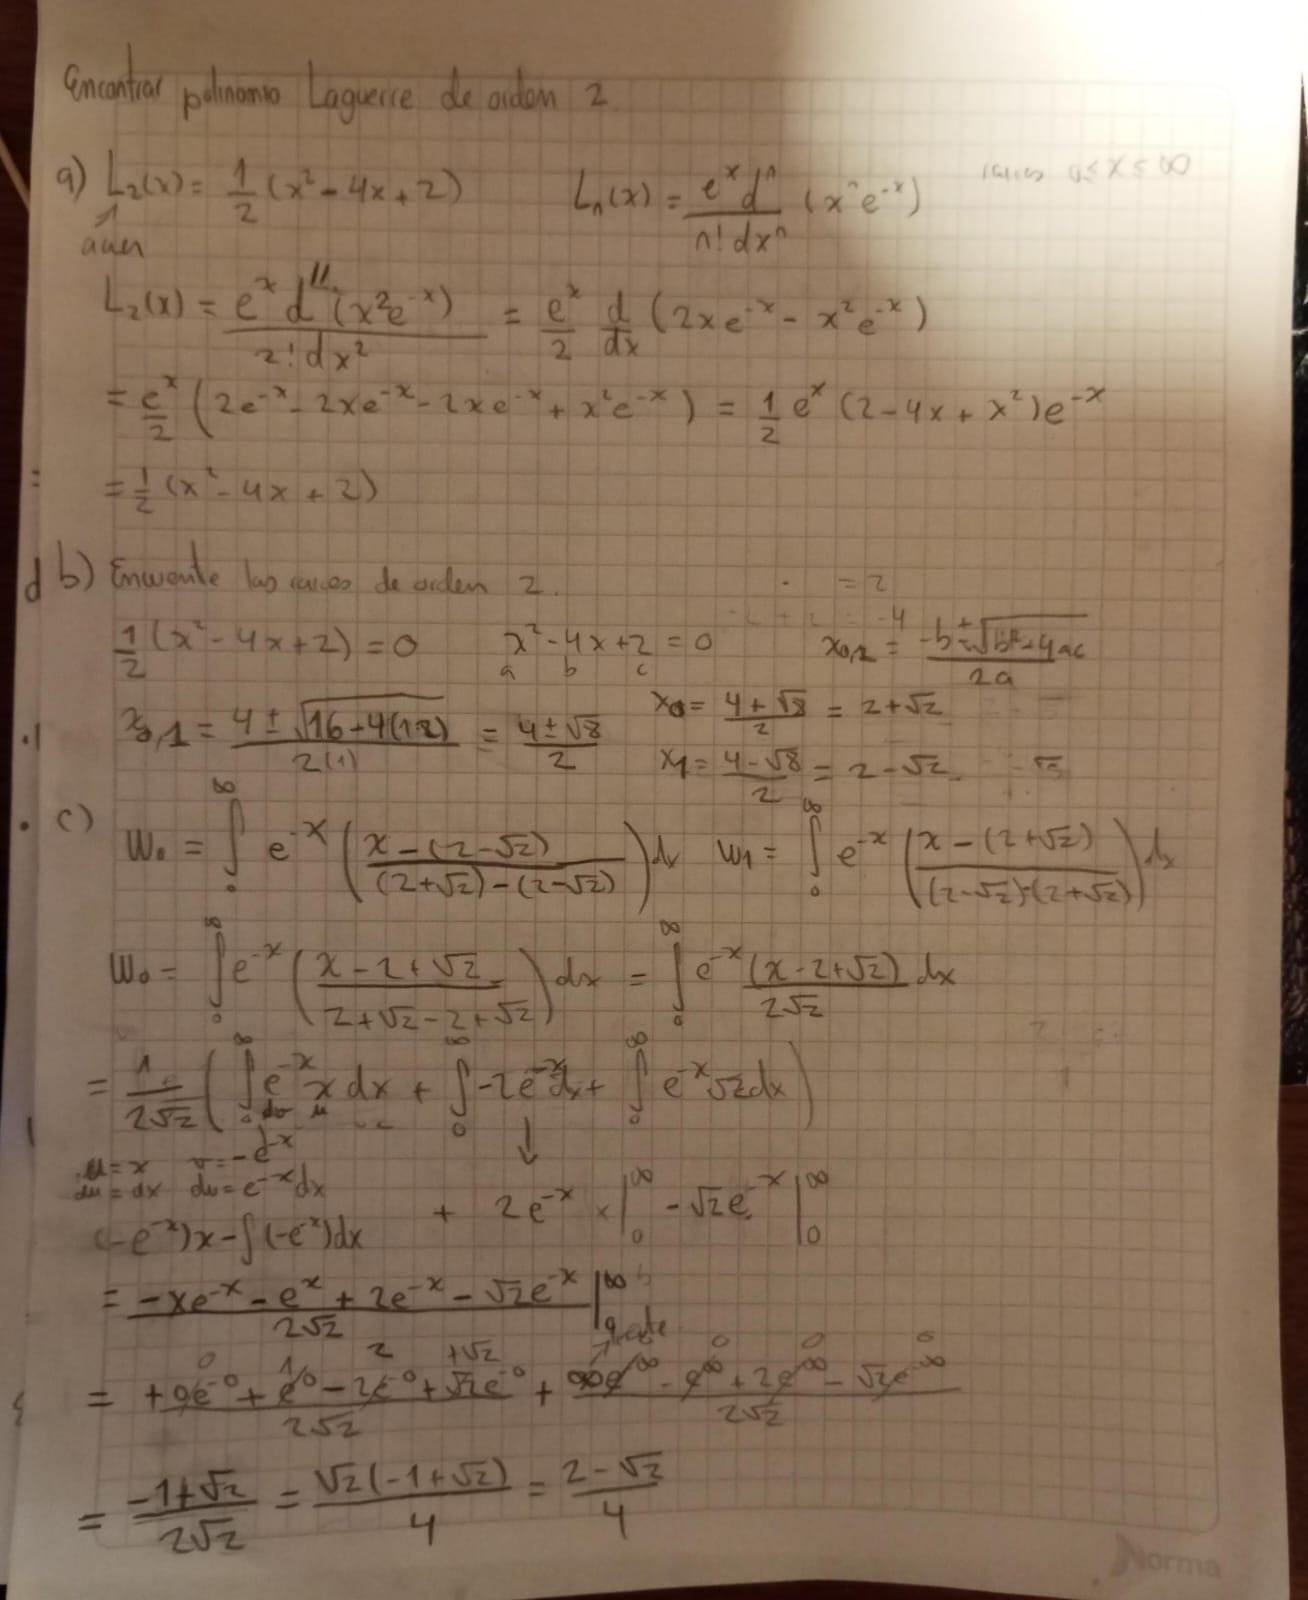 Encontrar polinomio Laguerre de orden 2
a) L₂(x) = 1/2 (x² - 4x + 2)    Lₙ(x) = eˣ dⁿ / n! dxⁿ (xⁿ e⁻ˣ)    0 ≤ x ≤ ∞
L₂(x) = eˣ d'' (x² e⁻ˣ) / 2! dx² = eˣ/2 d/dx (2xe⁻ˣ - x²e⁻ˣ)
= eˣ/2 (2e⁻ˣ - 2xe⁻ˣ - 2xe⁻ˣ + x²e⁻ˣ) = 1/2 eˣ (2 - 4x + x²)e⁻ˣ
= 1/2 (x² - 4x + 2)
b) Encuentre las raices de orden 2.    = 2
-4
1/2 (x² - 4x + 2) = 0    x² - 4x + 2 = 0    = -b ± √ 4ac / 2a
a b c
= 4 ± √16 - 4(1·2) / 2(1) = 4 ± √8 / 2    x₀ = 4 + √8 / 2 = 2 + √2
x₁ = 4 - √8 / 2 = 2 - √2
c)
W₀ = ∫₀^∞ e⁻ˣ (x - (2 - √2) / (2 + √2) - (2 - √2)) dx    W₁ = ∫₀^∞ e⁻ˣ (x - (2 + √2) / (2 - √2) - (2 + √2)) dx
W₀ = ∫₀^∞ e⁻ˣ (x - 2 + √2 / 2 + √2 - 2 + √2) dx = ∫₀^∞ e⁻ˣ (x - 2 + √2) / 2√2 dx
= 1 / 2√2 (∫₀^∞ e⁻ˣ x dx + ∫₀^∞ -2e⁻ˣ dx + ∫₀^∞ e⁻ˣ √2 dx)
dv u
↓
u = x    v = -e⁻ˣ
du = dx    dv = e⁻ˣ dx
(-e⁻ˣ)x - ∫(-e⁻ˣ)dx    + 2e⁻ˣ |₀^∞ - √2 e⁻ˣ |₀^∞
= -xe⁻ˣ - eˣ + 2e⁻ˣ - √2 e⁻ˣ / 2√2 |₀^∞
0 1 2 +√2 0 0 0
= +0e⁻⁰ + e⁻⁰ - 2e⁻⁰ + √2e⁻⁰ / 2√2 + ∞e^∞ - e^∞ + 2e^∞ - √2e^-∞ / 2√2
= -1 + √2 / 2√2 = √2(-1 + √2) / 4 = 2 - √2 / 4
Norma